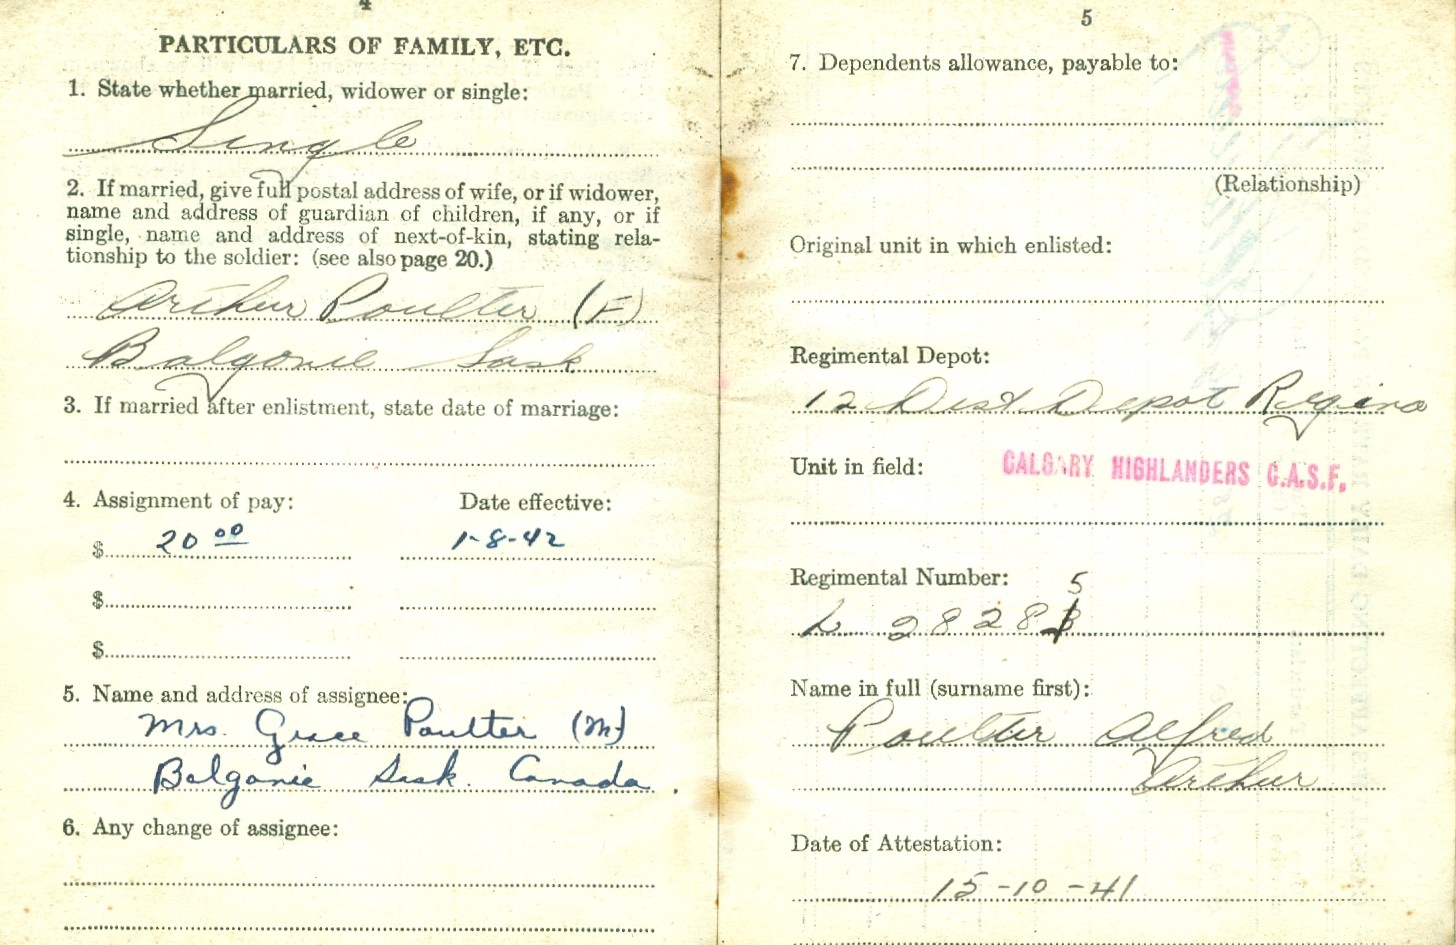 4
PARTICULARS OF FAMILY, ETC.
1. State whether married, widower or single:
Single
2. If married, give full postal address of wife, or if widower,
name and address of guardian of children, if any, or if
single, name and address of next-of-kin, stating rela-
tionship to the soldier: (see also page 20.)
Arthur Poulter (F)
Balgonie Sask
3. If married after enlistment, state date of marriage:
4. Assignment of pay: Date effective:
$ 20 00 1-8-42
$
$
5. Name and address of assignee:
Mrs. Grace Poulter (M)
Balgonie Sask. Canada.
6. Any change of assignee:
5
7. Dependents allowance, payable to:
(Relationship)
Original unit in which enlisted:
Regimental Depot:
12 Dist Depot Regina
Unit in field: CALGARY HIGHLANDERS C.A.S.F.
Regimental Number:
5
L 2828
Name in full (surname first):
Poulter Alfred
Arthur
Date of Attestation:
15-10-41